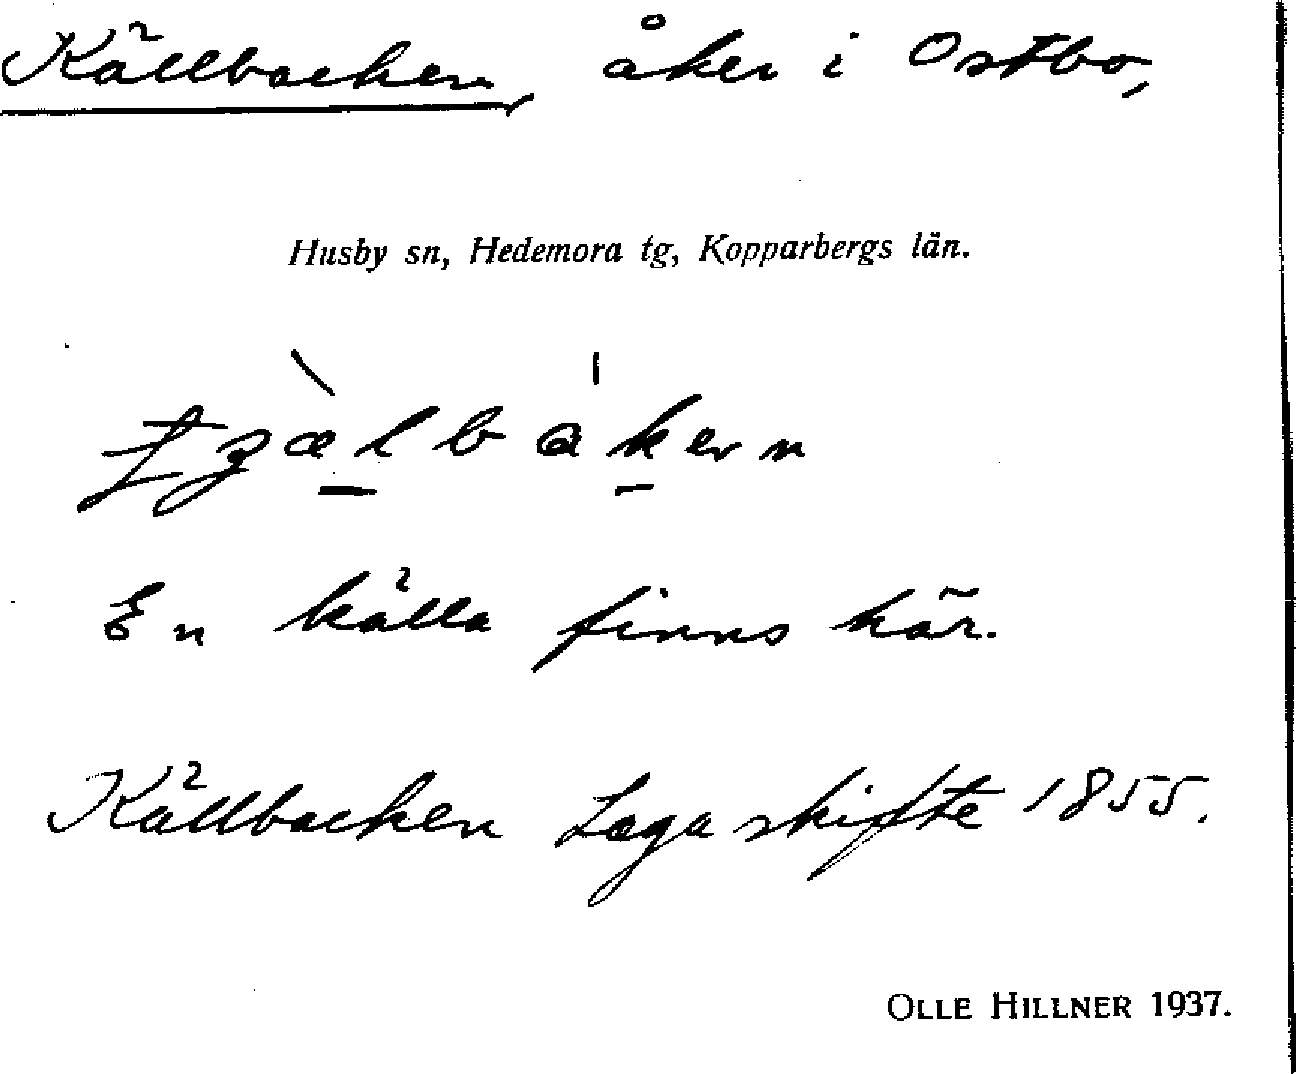 Källbacken, åker i Ostbo,
Husby sn, Hedemora tg, Kopparbergs län.
En källa finns här.
Källbacken Laga skifte 1855.
OLLE HILLNER 1937.